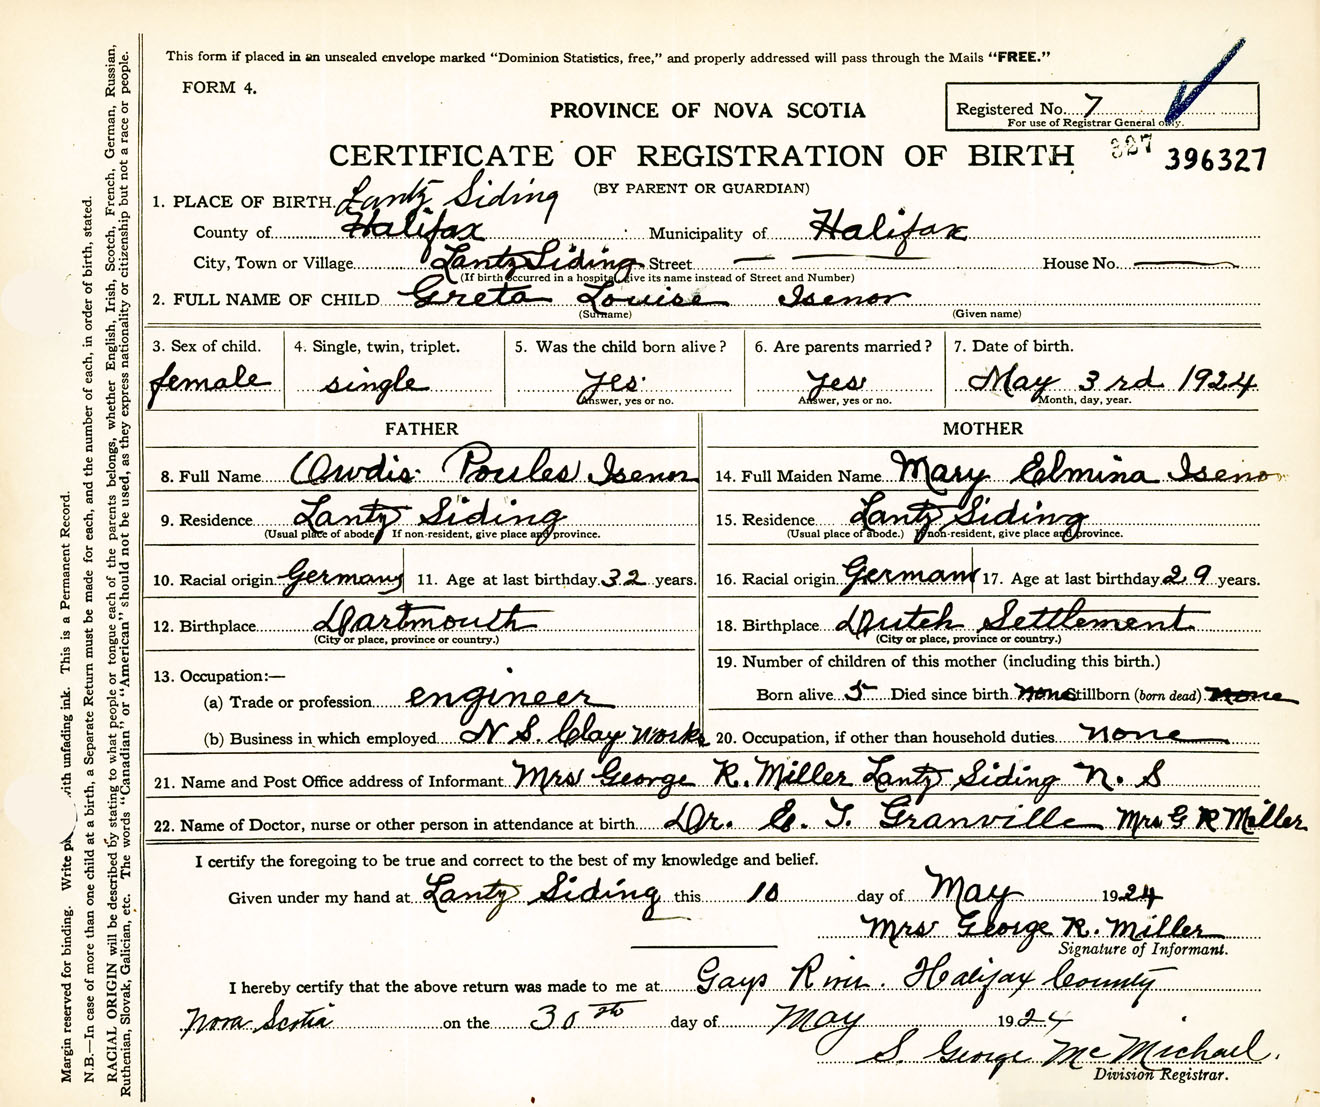 This form if placed in an unsealed envelope marked "Dominion Statistics, free," and properly addressed will pass through the Mails "FREE."
FORM 4.
PROVINCE OF NOVA SCOTIA
Registered No. 7
For use of Registrar General only.
CERTIFICATE OF REGISTRATION OF BIRTH
327 396327
(BY PARENT OR GUARDIAN)
1. PLACE OF BIRTH. Lantz Siding
County of Halifax Municipality of Halifax
City, Town or Village Lantz Siding Street — — House No. —
(If birth occurred in a hospital, give its name instead of Street and Number)
2. FULL NAME OF CHILD Greta Louise Isenor
(Surname) (Given name)
3. Sex of child. 4. Single, twin, triplet. 5. Was the child born alive? 6. Are parents married? 7. Date of birth.
female single yes yes May 3rd 1924
Answer, yes or no. Answer, yes or no. Month, day, year.
FATHER MOTHER
8. Full Name Isenor 14. Full Maiden Name Mary Elmina Isenor
9. Residence Lantz Siding 15. Residence Lantz Siding
(Usual place of abode) If non-resident, give place and province. (Usual place of abode.) If non-resident, give place and province.
10. Racial origin Germany 11. Age at last birthday 32 years. 16. Racial origin German 17. Age at last birthday 29 years.
12. Birthplace Dartmouth 18. Birthplace Dutch Settlement
(City or place, province or country.) (City or place, province or country.)
13. Occupation:— 19. Number of children of this mother (including this birth.)
(a) Trade or profession engineer Born alive 5 Died since birth none Stillborn (born dead) none
(b) Business in which employed N S. Clay Works 20. Occupation, if other than household duties none
21. Name and Post Office address of Informant Mrs George R. Miller Lantz Siding N. S
22. Name of Doctor, nurse or other person in attendance at birth Dr. E. T. Granville Mrs G R Miller
I certify the foregoing to be true and correct to the best of my knowledge and belief.
Given under my hand at Lantz Siding this 10 day of May 1924
Mrs George R. Miller
Signature of Informant.
I hereby certify that the above return was made to me at Gays River. Halifax County
Nova Scotia on the 30th day of May 1924
S. George McMichael.
Division Registrar.
Margin reserved for binding. Write with unfading ink. This is a Permanent Record.
N.B.—In case of more than one child at a birth, a Separate Return must be made for each, and the number of each, in order of birth, stated.
RACIAL ORIGIN will be described by stating to what people or tongue each of the parents belongs, whether English, Irish, Scotch, French, German, Russian,
Ruthenian, Slovak, Galician, etc. The words "Canadian" or "American" should not be used, as they express nationality or citizenship but not a race or people.